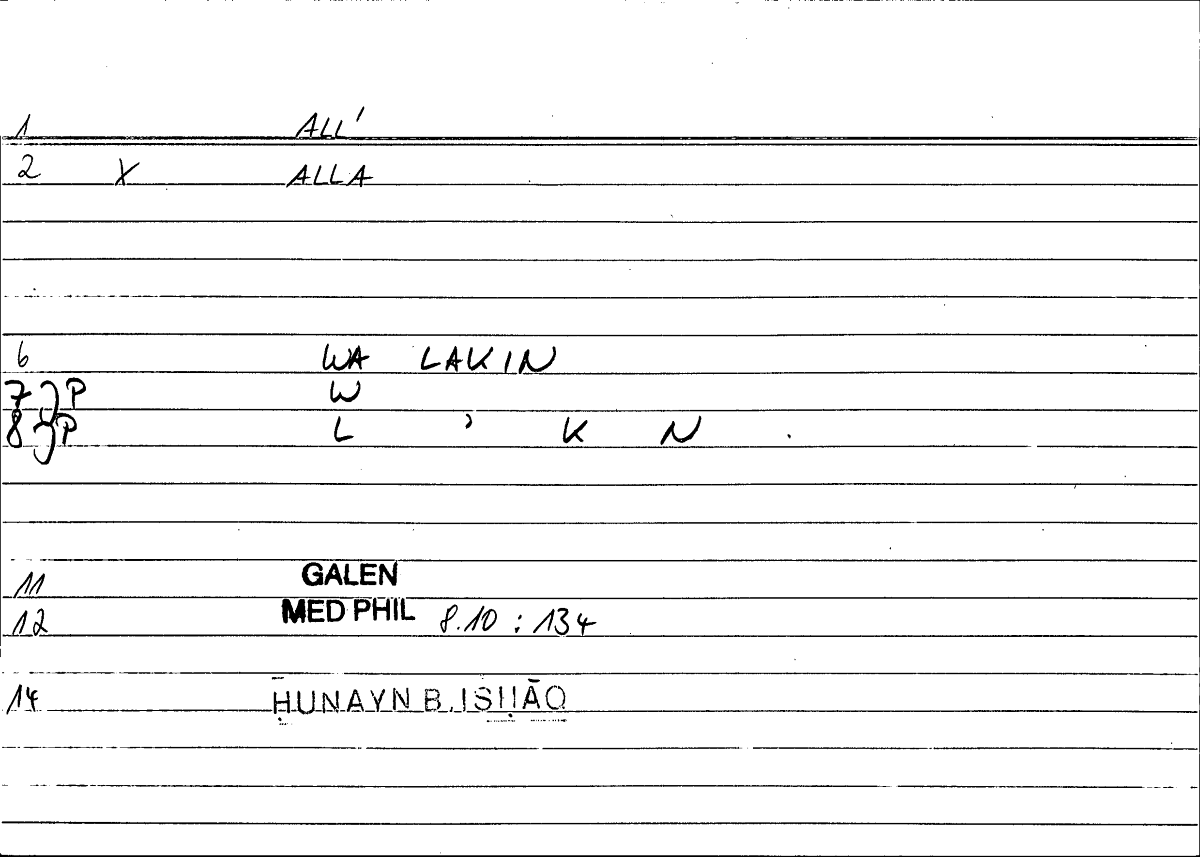 1 ALL'
2 X ALLA
6 WA LAKIN
7 P W
8 P L ʾ K N .
11 GALEN
12 MED PHIL 8.10 : 134
14 ḤUNAYN B. ISḤĀQ